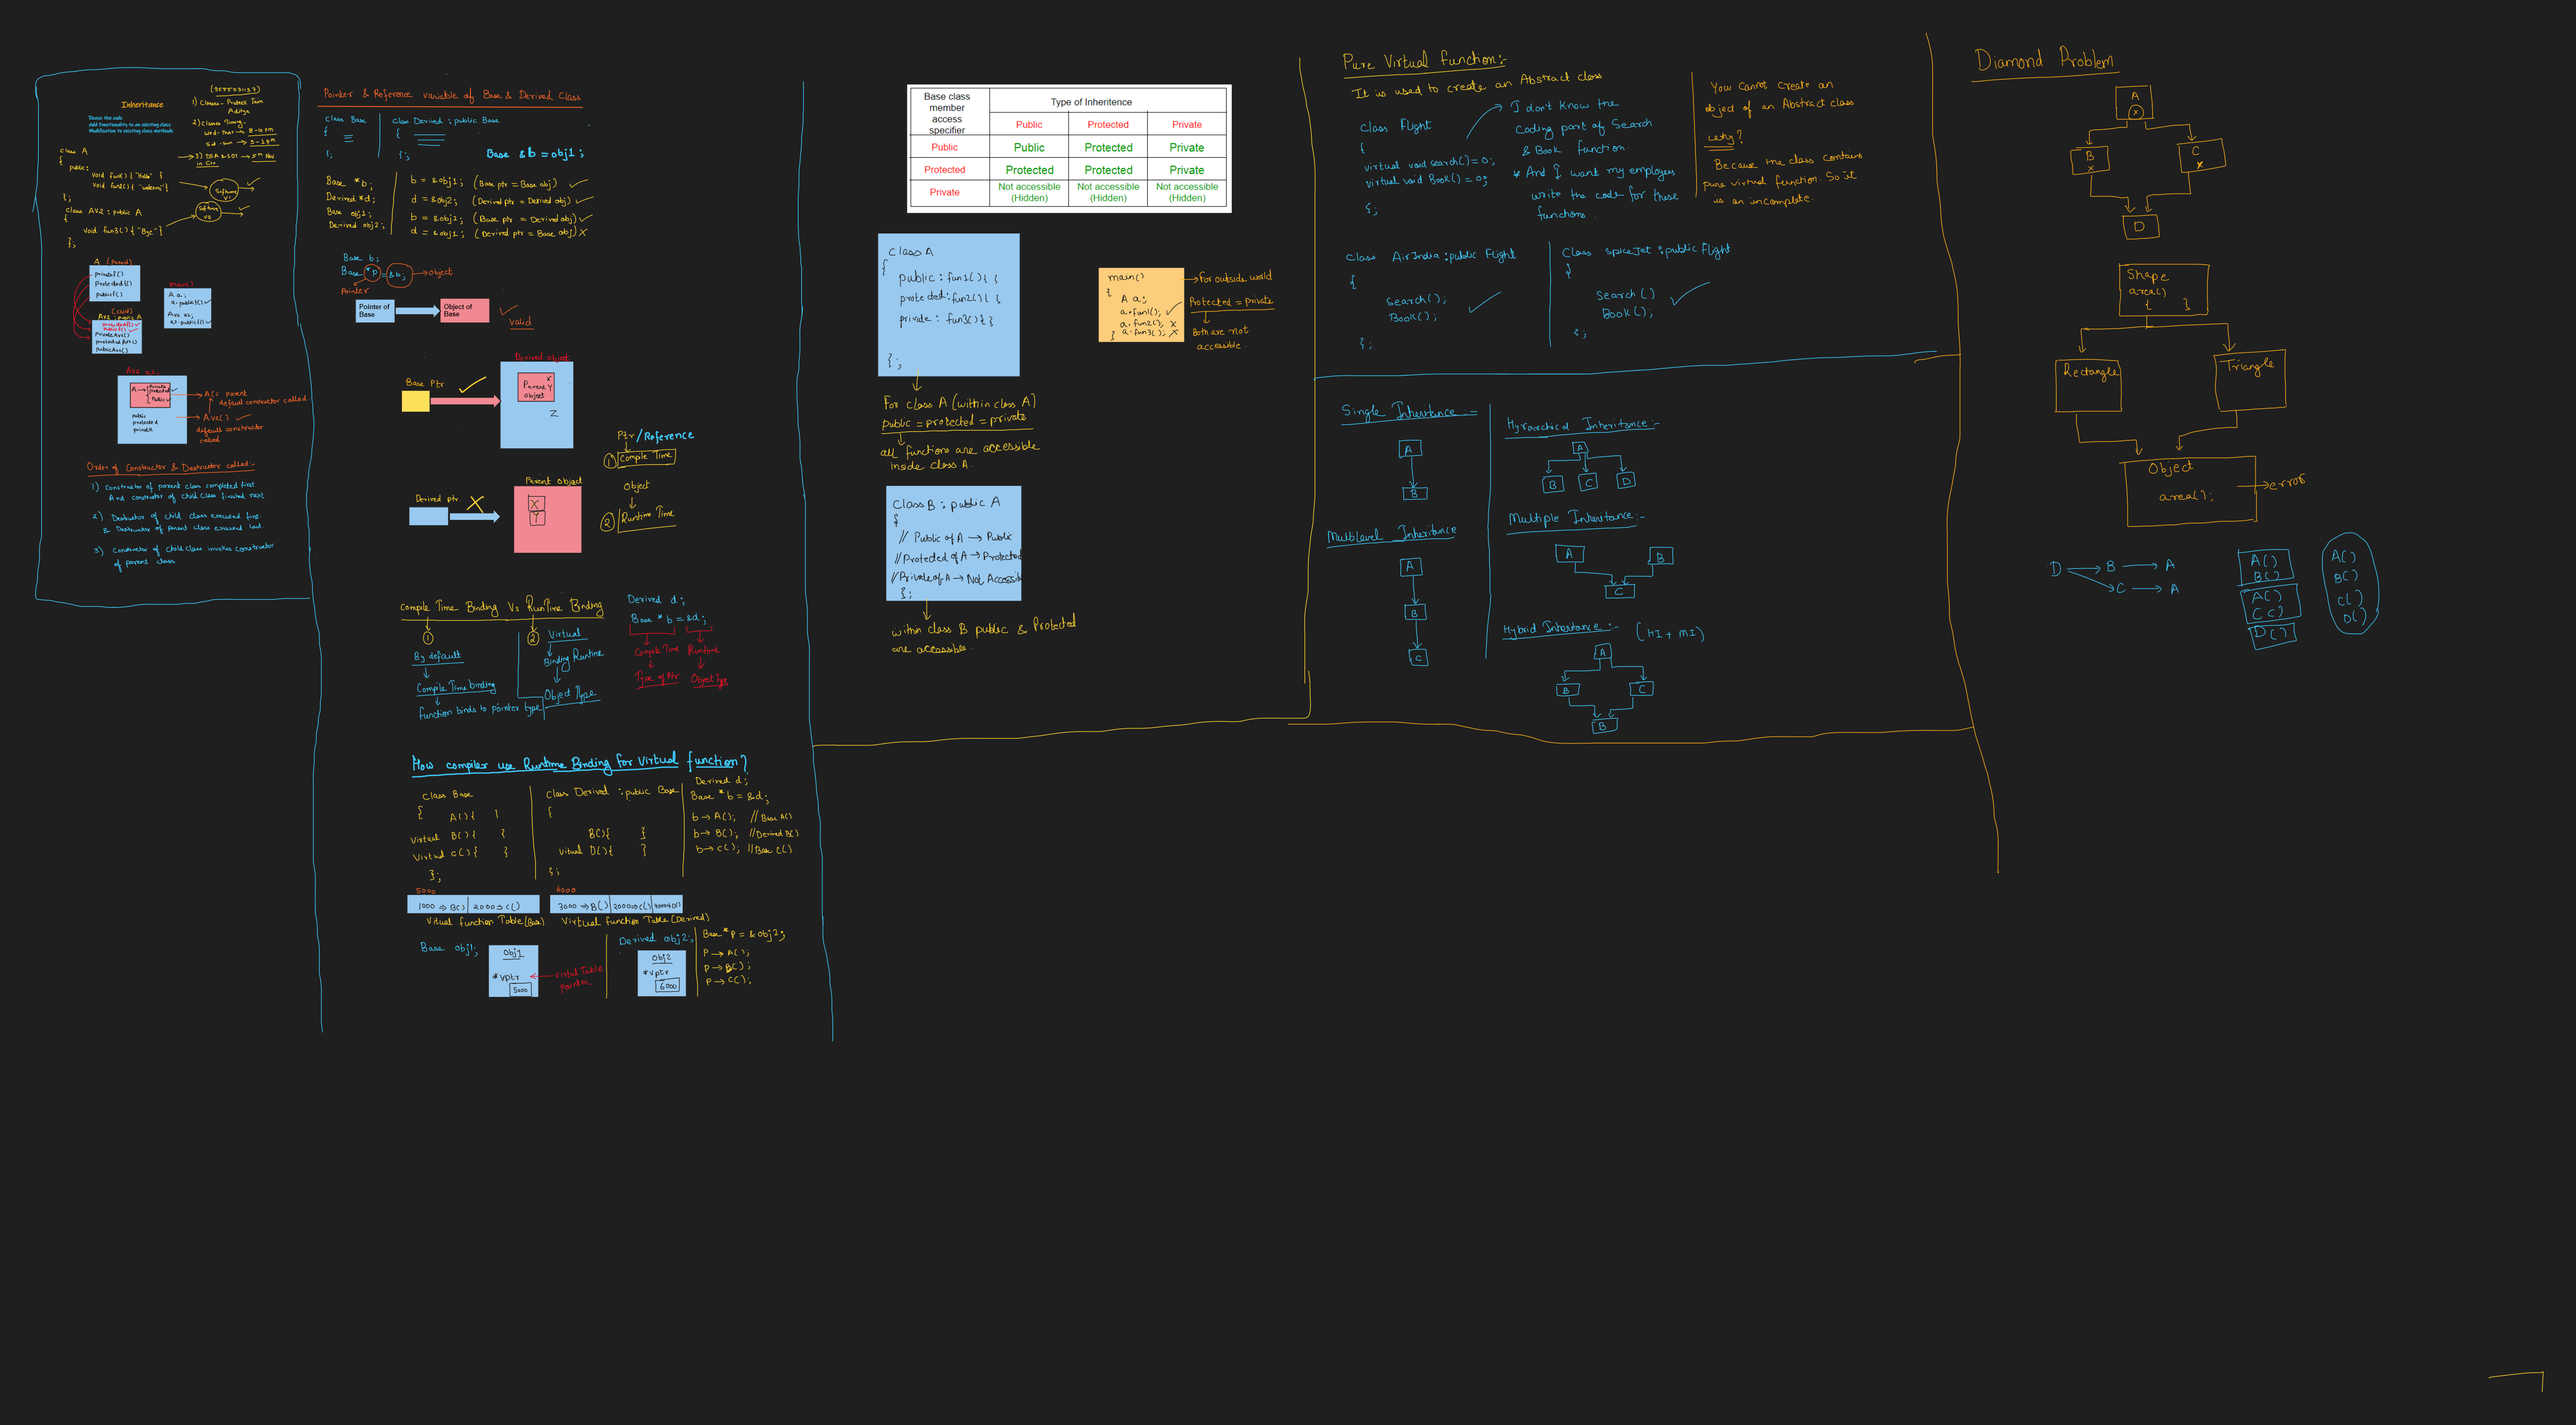 Inheritance
Reuse the code
Add Functionality to an existing class
Modification to existing class methods
1) Classes - Prateek Jain
Aditya
2) Classes Timing -
3) DSA &
in C++
5th Nov
class A
{
public:
void fun1() { "Hello" }
};
class AV2 : public A
{
void fun3() { "Bye" }
};
Software
V1
Software
V2
A (Parent)
private f()
Protected f()
public f()
(Child)
AV2 : public A
main()
A a;
a.publicf()
AV2 a2;
A() parent
default constructor called
AV2()
default constructor
called
public
protected
private
Order of Constructor & Destructor called:-
1) Constructor of parent class completed first
And constructor of child class finished next.
2) Destructor of child class executed first
& Destructor of parent class executed last.
3) Constructor of child class invokes constructor
of parent class
Pointer & Reference variable of Base & Derived Class
Class Base
{
};
class Derived : public Base
{
};
Base &b = obj1;
Base *b;
Derived *d;
Base obj1;
Derived obj2;
b = &obj1; (Base ptr = Base obj)
d = &obj2; (Derived ptr = Derived obj)
b = &obj2; (Base ptr = Derived obj)
d = &obj1; (Derived ptr = Base obj) X
Base b;
Base *p = &b; → object
Pointer
Pointer of
Base
Object of
Base
valid
Derived object
Base Ptr
Parent
object
X
Y
Z
Ptr/Reference
① Compile Time
Object
② Runtime Time
Parent object
Derived ptr.
X
Y
Compile Time Binding Vs RunTime Binding
①
By default
Compile Time binding
function binds to pointer type
②
Virtual
Binding Runtime
Object Type
Derived d;
Base * b = &d;
Compile Time
Runtime
Type of Ptr
Object Type
How compiler use Runtime Binding for Virtual function?
Class Base
{
A() { }
Virtual B() { }
Virtual C() { }
};
Class Derived : public Base
{
B() { }
Vitual D() { }
};
Derived d;
Base * b = &d;
b → A(); // Base A()
b → B(); // Derived B()
b → C(); // Base C()
5000
1000 ⇒ B() 2000 ⇒ C()
Vitual function Table (Base)
6000
3000 ⇒ B() 2000 ⇒ C() 4000 ⇒ D()
Virtual function Table (Derived)
Base obj1;
Obj1
*vptr
5000
Virtual Table
pointer
Derived obj2;
Obj2
*vptr
6000
Base * P = & obj2;
P → A();
P → B();
P → C();
Base class
member
access
specifier
Type of Inheritence
Public Protected Private
Public Public Protected Private
Protected Protected Protected Private
Private Not accessible (Hidden) Not accessible (Hidden) Not accessible (Hidden)
Class A
{
public : fun1() { }
protected : fun2() { }
private : fun3() { }
};
For class A (within class A)
public = protected = private
all functions are accessible
inside class A.
main()
{
A a;
a.fun1();
a.fun2(); X
} a.fun3(); X
For outside world
Protected = private
Both are not
accessible.
Class B : public A
{
// Public of A → Public
// Protected of A → Protected
// Private of A → Not Accessib
};
within class B public & Protected
are accessible.
Pure Virtual function:-
It is used to create an Abstract class
class Flight
{
virtual void search() = 0;
virtual void Book() = 0;
};
I don't know the
Coding part of Search
& Book function.
* And I want my employees
write the code for these
functions.
You cannot create an
object of an Abstract class
why?
Because the class contains
pure virtual function. So it
is an incomplete.
Class AirIndia : public Flight
{
Search();
Book();
};
Class spiceJet : public Flight
{
Search()
Book();
};
Single Inheritance :-
A
B
Multilevel Inheritance
A
B
C
Hyrarchical Inheritance :-
A
B C D
Multiple Inheritance:-
A B
C
Hybrid Inheritance :- (HI + MI)
A
B C
B
Diamond Problem
A
x
B
x
C
x
D
Shape
area()
{ }
Rectangle
Triangle
Object
area();
error
D → B → A
C → A
A()
B()
A()
C()
D()
A()
B()
C()
D()